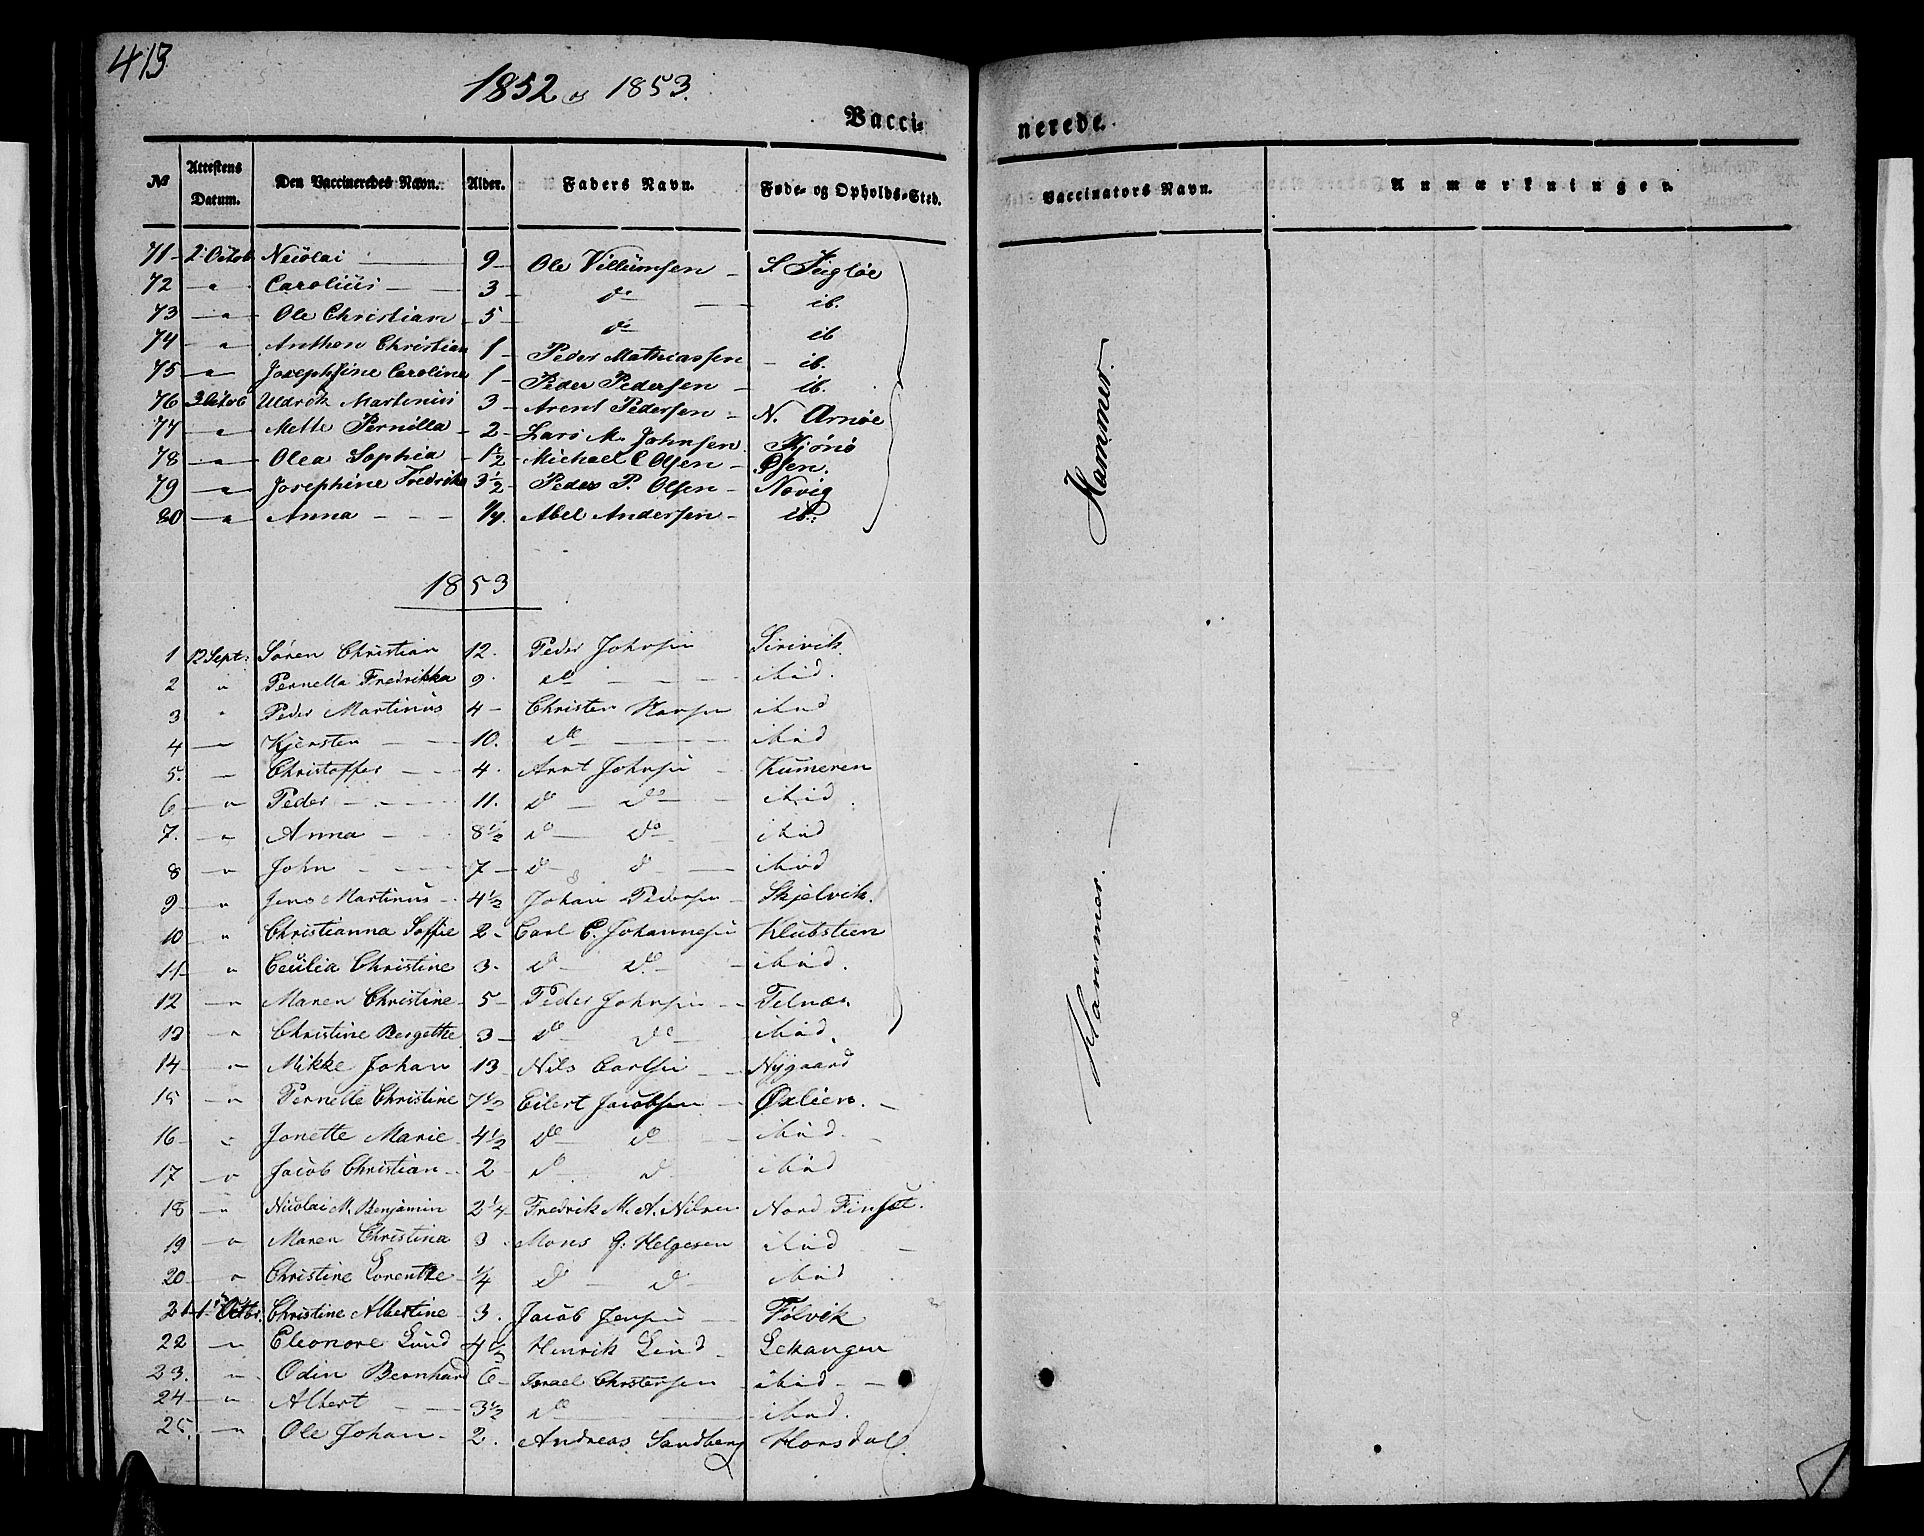 413
1852 og 1853.
Vacci-
nerede.
No Attestens Datum. Den Vaccineredes Navn. Alder. Faders Navn. Føde- og Opholds-Sted. Vaccinators Navn. Anmærkninger.
71 2 Octob Nicolai 9 Ole Villumsen S. Fugløe
72 " Carolius 3 do ib.
73 " Ole Christian 5 do ib
74 " Anthon Christian 1 Peder Mathiassen ib.
75 " Josephine Caroline 1 Peder Pedersen ib.
76 3 Octob Uldrik Martinus 3 Arent Pedersen N. Arnøe
77 " Mette Pernilla 2 Lars M. Johnsen
78 " Olea Sophia 1½ Michael C Olsen Øsen.
79 " Josephine Fredrika 3½ Peder P. Olsen Novig
80 " Anna 1/4 Abel Andersen ib:
Hammer.
1853
1 12 Sept: Søren Christian 12. Peder Johnsen
2 " Pernella Fredrikka 9. do ibid.
3 " Peder Martinus 4 Christen Hansen ibid
4 " Kjersten 10. do ibid
5. " Christoffer 4. Arnt Johnsen Kumeren
6 " Peder 11. do do ibid
7. " Anna 8½ do do ibid
8 " John 7 do do ibid
9 " Jens Martinus 4½ Johan Pedersen Skjelvik.
10 " Christianna Soffie 2 Carl C. Johannesen Klubsteen
11 " Cecilia Christine 3. do do ibid.
12 " Maren Christine 5 Peder Johnsen Felnæs.
13 " Christine Bergette 3 do do ibid.
14 " Mikke Johan 13 Nils Carlsen Nygaard
15 " Pernelle Christine 7½ Eilert Jacobsen Øxlien.
16 " Jonette Marie 4½ do do ibid.
17 " Jacob Christian 2 do do ibid
18 " Nicolai M. Benjamin 2¼ Fredrik M. A. Nilsen Nord Finset.
19 " Maren Christina 3 Mons G. Helgesen ibid
20 " Christine Lorentze 1/4 do do ibid
21 1 Octbr. Christine Albertine 3. Jacob Jensen Følvik
22 " Eleonore Lund 4½ Henrik Lund Lekangen
23. " Odin Bernhard 6 Israel Christensen ibid
24 " Albert 3½ do ibid.
25. " Ole Johan 2. Andreas Sandberg Horsdal.
Hammer.